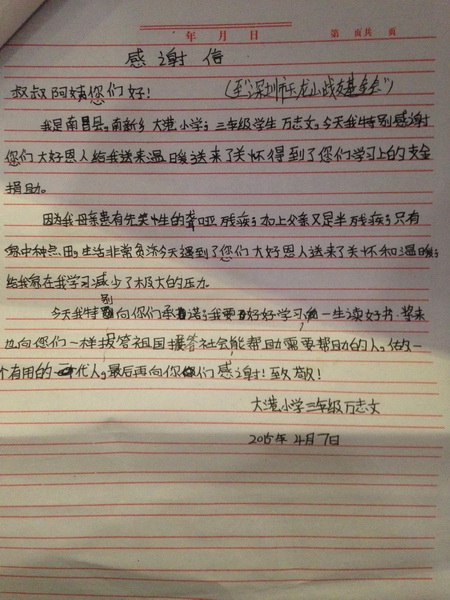 年 月 日 第 页共 页
感谢信
叔叔阿姨您们好! (至"深圳市天龙山战友基金会")
我是南昌县,南新乡大港小学,三年级学生万志文,今天我特别感谢
您们大好恩人给我送来温暖送来了关怀得到了您们学习上的支金
捐助。
因为我母亲患有先笑性的聋哑残疾,加上父亲又是半残疾,只有
家中种点田,生活非常贫济今天遇到了您们大好恩人送来了关怀和温暖,
给我家在我学习减少了极大的压力。
今天我特别向你们承诺,我要好好学习,一生读好书.将来
也向您们一样报答祖国报答社会,能帮助需要帮助的人,做一
个有用的一代人,最后再向你们感谢!致敬!
大港小学三年级万志文
2015年4月7日